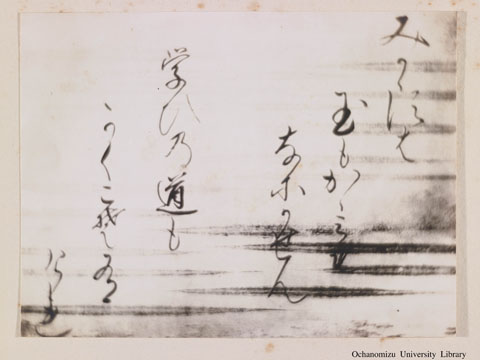 みかゝすは
玉もかゝみも
なにかせん
学ひ乃道も
かくこそ有
けれ
Ochanomizu University Library